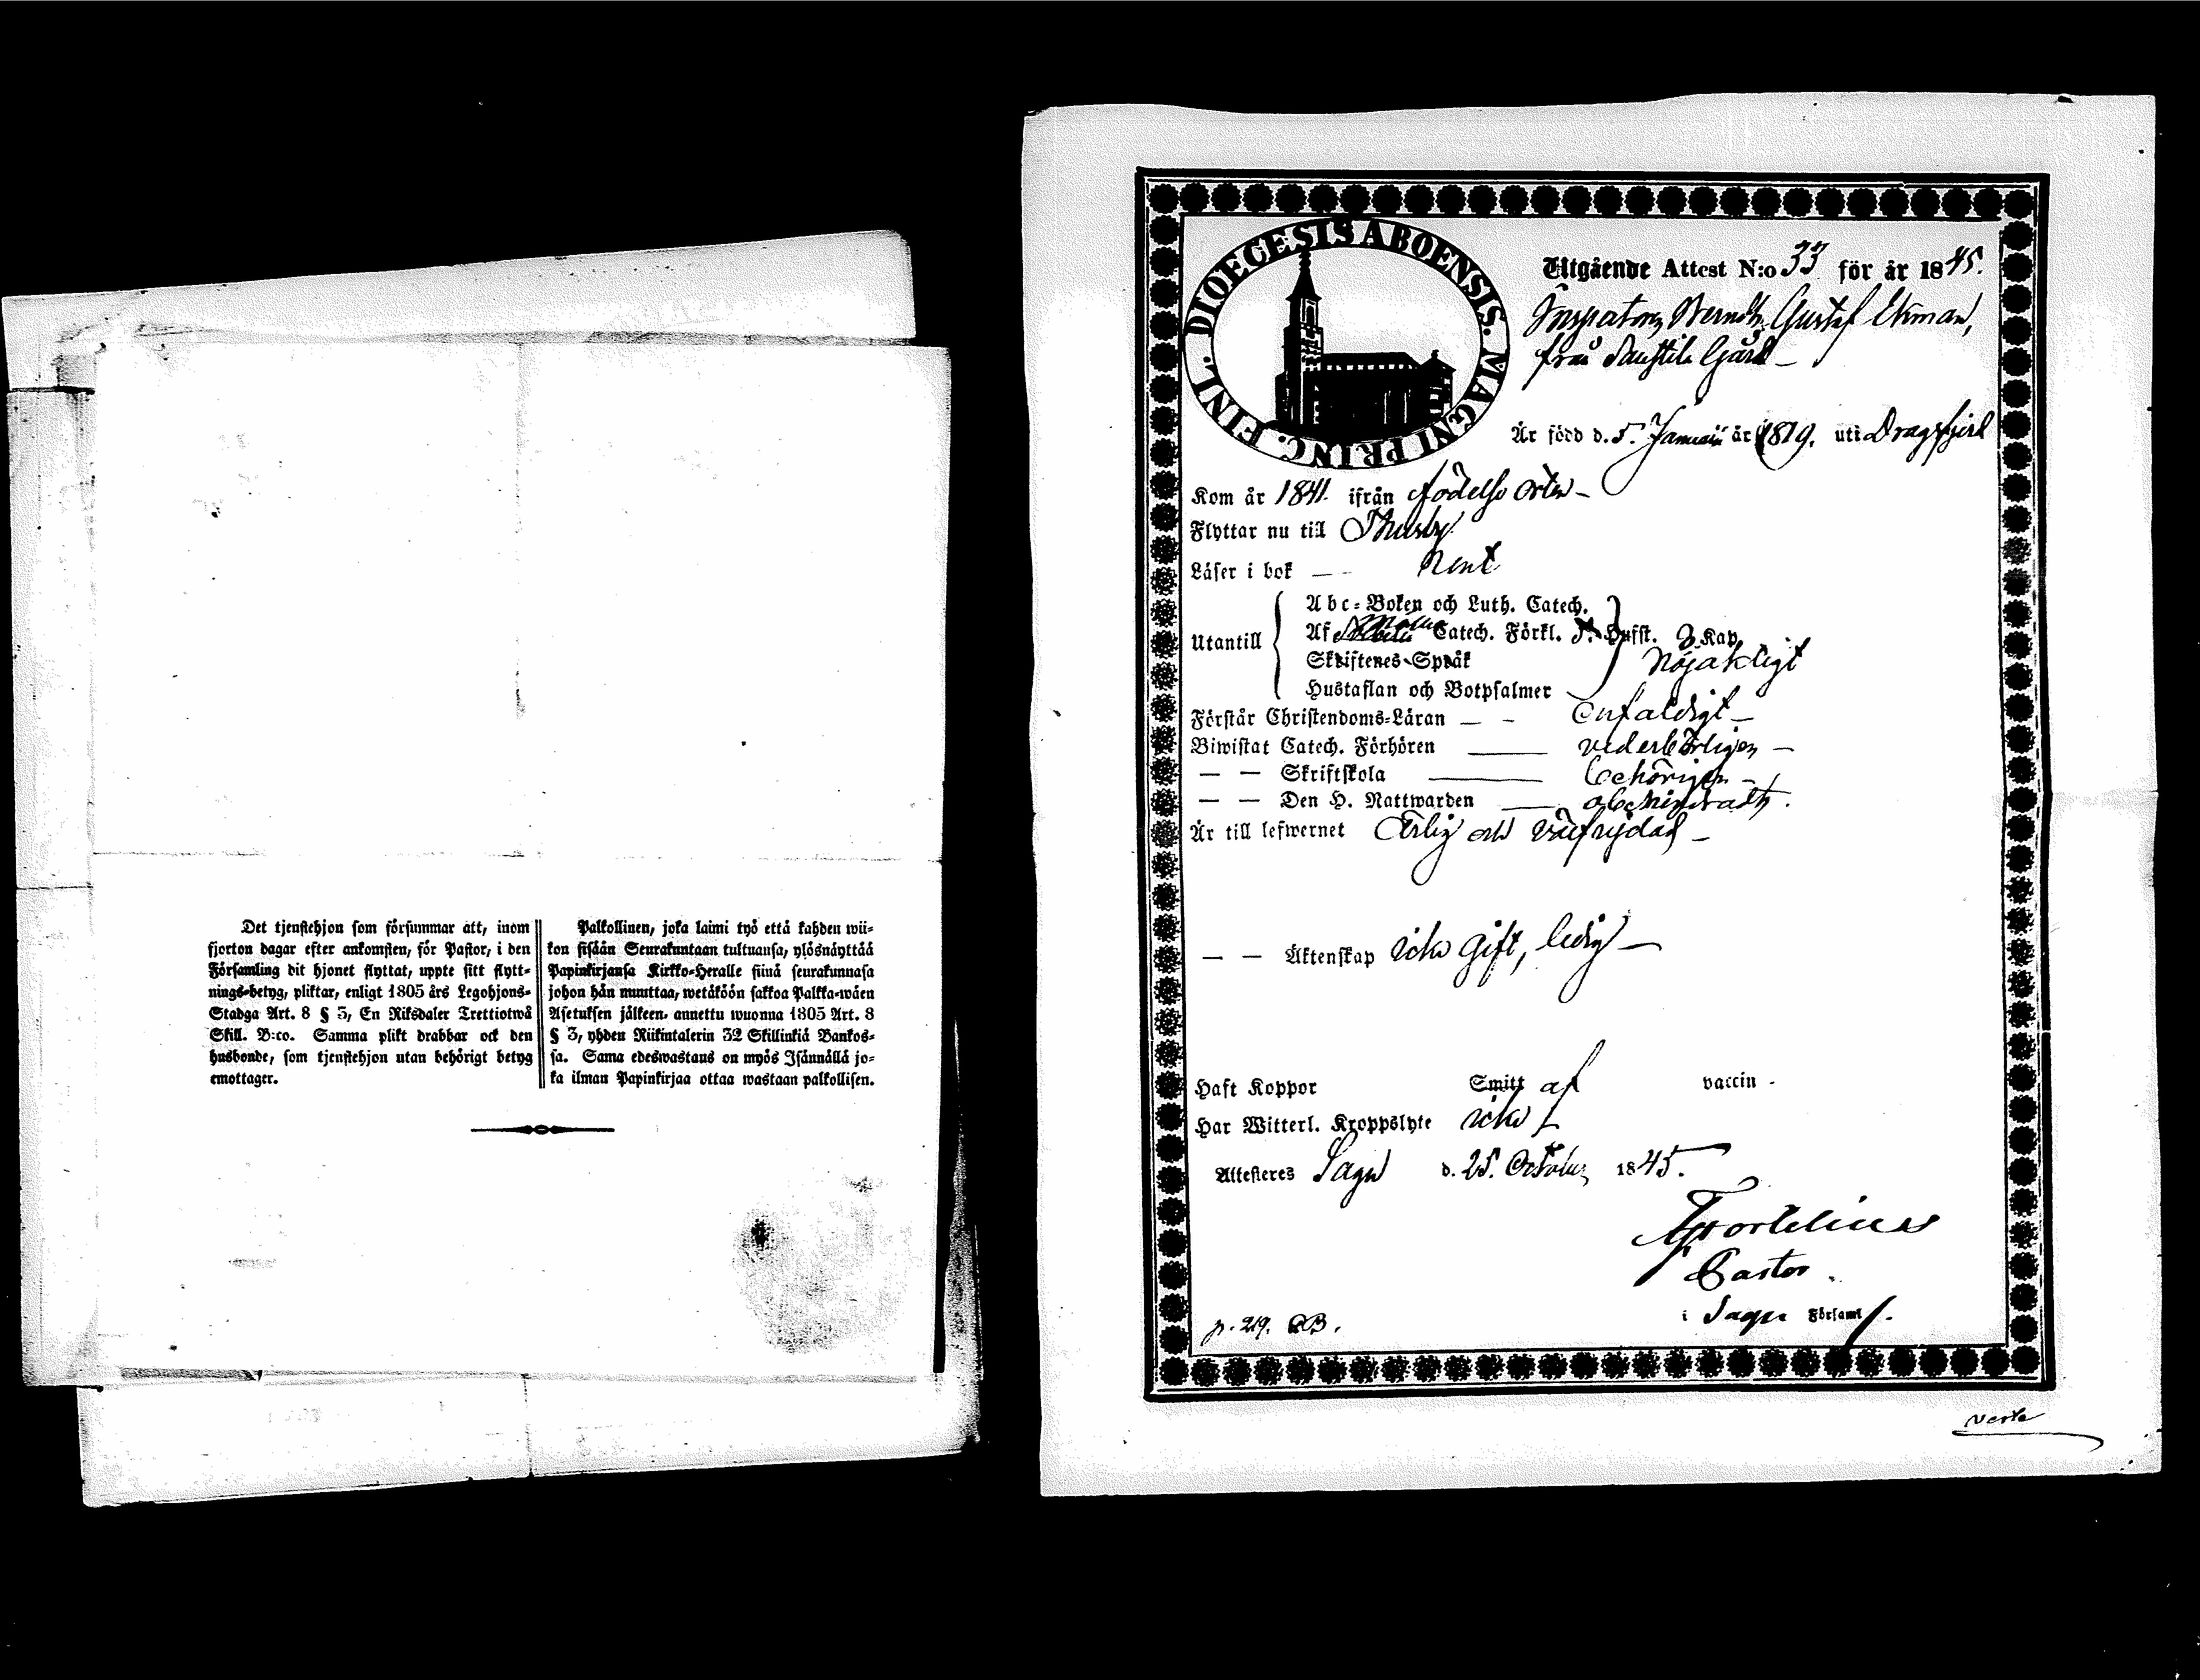 Det tjenstehjon som försummar att, inom
fjorton dagar efter ankomsten, för Pastor, i den
Församling dit hjonet flyttat, uppte sitt flytt-
nings-betyg, pliktar, enligt 1805 års Legohjons-
Stadga Art. 8 § 3, En Riksdaler Trettiotwå
Skill. B:co. Samma plikt drabbar ock den
husbonde, som tjenstehjon utan behörigt betyg
emottager.
Palkollinen, joka laimi työ että kahden wii-
kon sisään Seurakuntaan tultuansa, ylösnäyttää
Papinkirjansa Kirkko-Heralle siinä seurakunnasa
johon hän muuttaa, wetäköön sakkoa Palkka-wäen
Asetuksen jälkeen, annettu wuonna 1805 Art. 8
§ 3, yhden Riikintalerin 32 Skillinkiä Bankos-
sa. Sama edeswastaus on myös Isännällä jo-
ka ilman Papinkirjaa ottaa wastaan palkollisen.
DIOECESIS ABOENSIS. MAGNI PRINC. FINL.
Utgående Attest N:o 33 för år 1845.
Inspatorn Berndt Gustaf Ekman,
från Gård
Är född d. 5. Januarii år 1819. uti Dragsfjerd
Kom år 1841. ifrån födelse orten
Flyttar nu till Thusby
Läser i bok — - rent
Utantill
Abc-Boken och Luth. Catech.
Af Catech. Förkl. Hufst. 3 Kap
Skriftenes Språk nöjaktigt
Hustaflan och Botpsalmer
Förstår Christendoms-Läran — - enfaldigt —
Biwistat Catech. Förhören — vederbörligen —
— — Skriftskola — behörigen —
— — Den H. Nattwarden — obehindradt.
Är till lefwernet Ärlig och välfrejdad —
— — Äktenskap icke gift, ledig —
Haft Koppor Smitt af vaccin -
Har Witterl. Kroppslyte icke
Attesteres Sagu d. 25. October 1845.
Pastor.
i Sagu Församl.
p. 219. CB.
verte